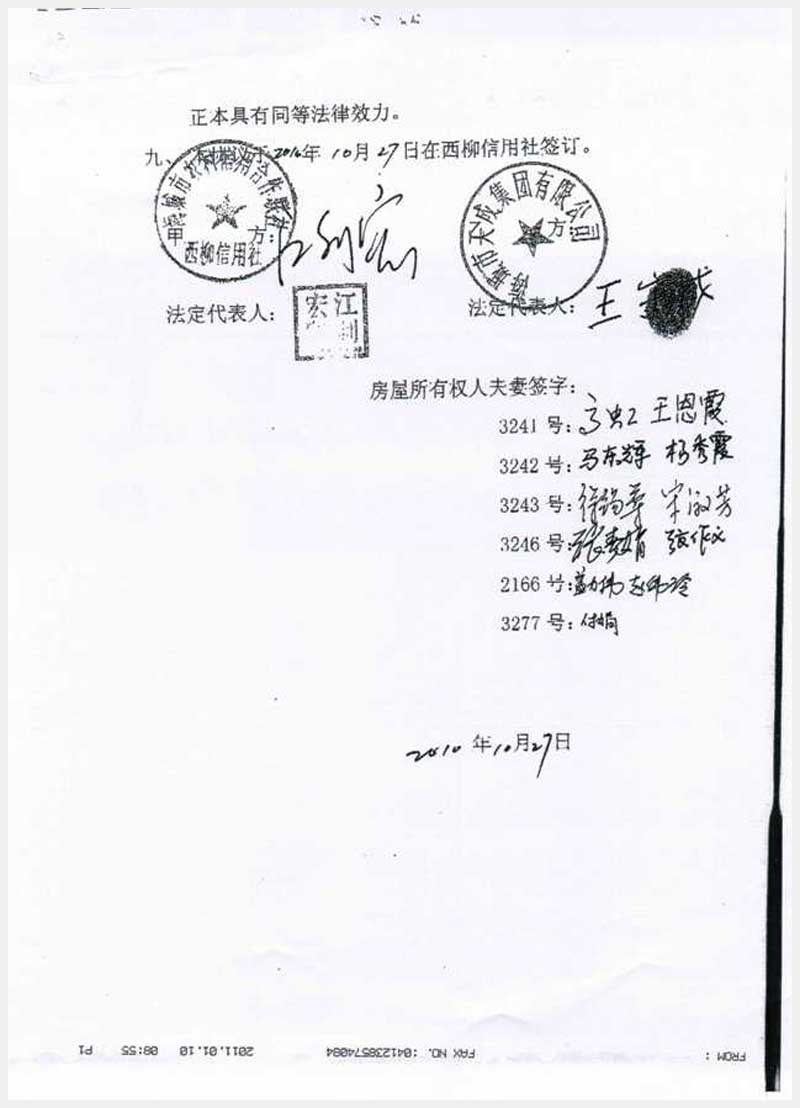 正本具有同等法律效力。
九、 2010年10月27日在西柳信用社签订。
海城市农村信用合作联社
西柳信用社
甲 方:
海城市天成集团有限公司
方:
法定代表人: 江利宏
法定代表人: 王
房屋所有权人夫妻签字:
3241 号: 王恩霞
3242 号: 马东辉 杨秀霞
3243 号: 宋淑芳
3246 号: 张作文
2166 号:
3277 号: 付娟
2010 年10月27日
FROM : FAX NO. :041238574084 2011.01.10 08:55 P1